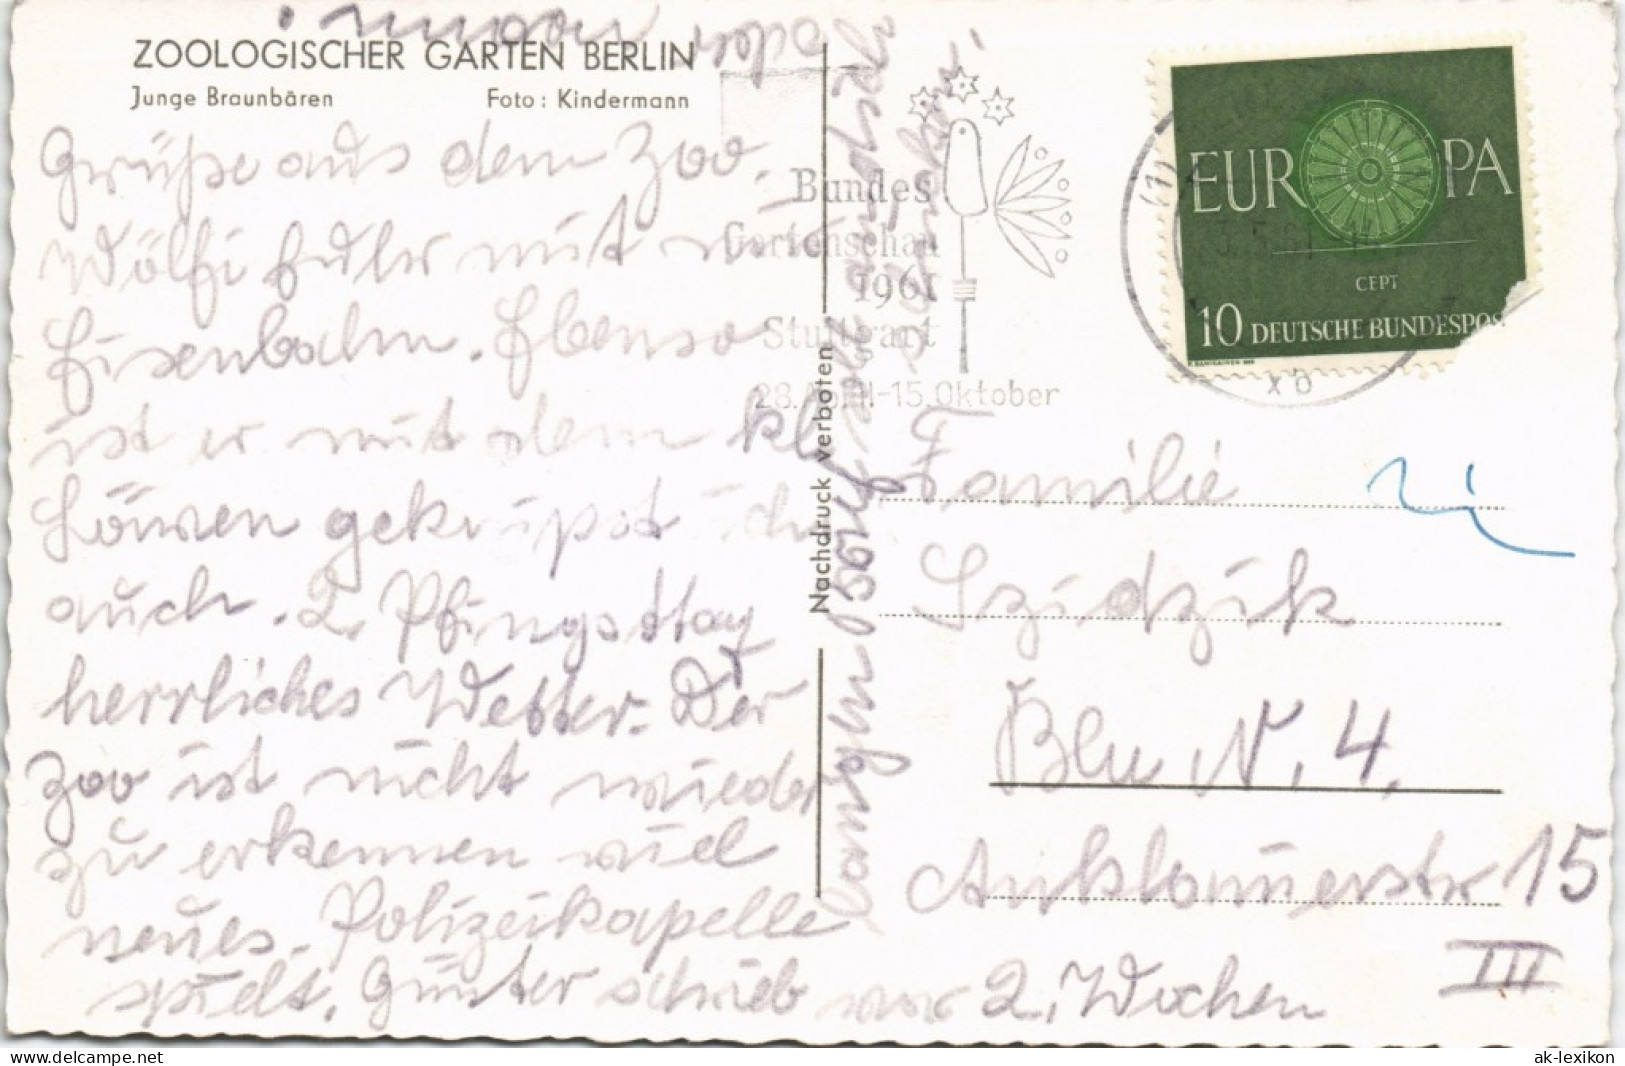 ZOOLOGISCHER GARTEN BERLIN
Junge Braunbären Foto: Kindermann
Grüße aus dem Zoo.
Wölfi fuhr mit
Eisenbahn. Ebenso
ist er mit dem kl.
Löwen geknipst
auch. 2. Pfingsttag
herrliches Wetter. Der
Zoo ist nicht wieder
zu erkennen viel
neues. Polizeikapelle
spielt. Günter schrieb vor 2, Wochen
langen
oder
Nachdruck verboten
Bundes
Gartenschau
1961
Stuttgart
28. April-15. Oktober
EUROPA
CEPT
10 DEUTSCHE BUNDESPOS
(1)
xb
Familie
Szidzik
Bln N. 4,
Anklamerstr 15
III
ak-lexikon
https://www.delcampe.net